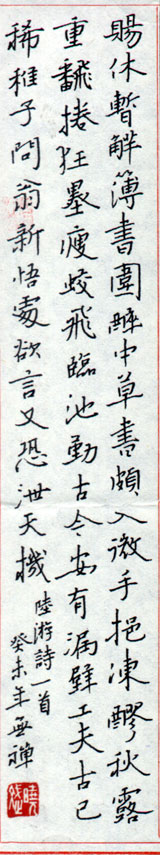 賜休暫解簿書圍醉中草書頗入微手挹凍醪秋露
重飜捲狂墨瘦蛟飛臨池勤古今安有漏壁工夫古已
稀稚子問翁新悟處欲言又恐泄天機
陸游詩一首
癸未年無禪